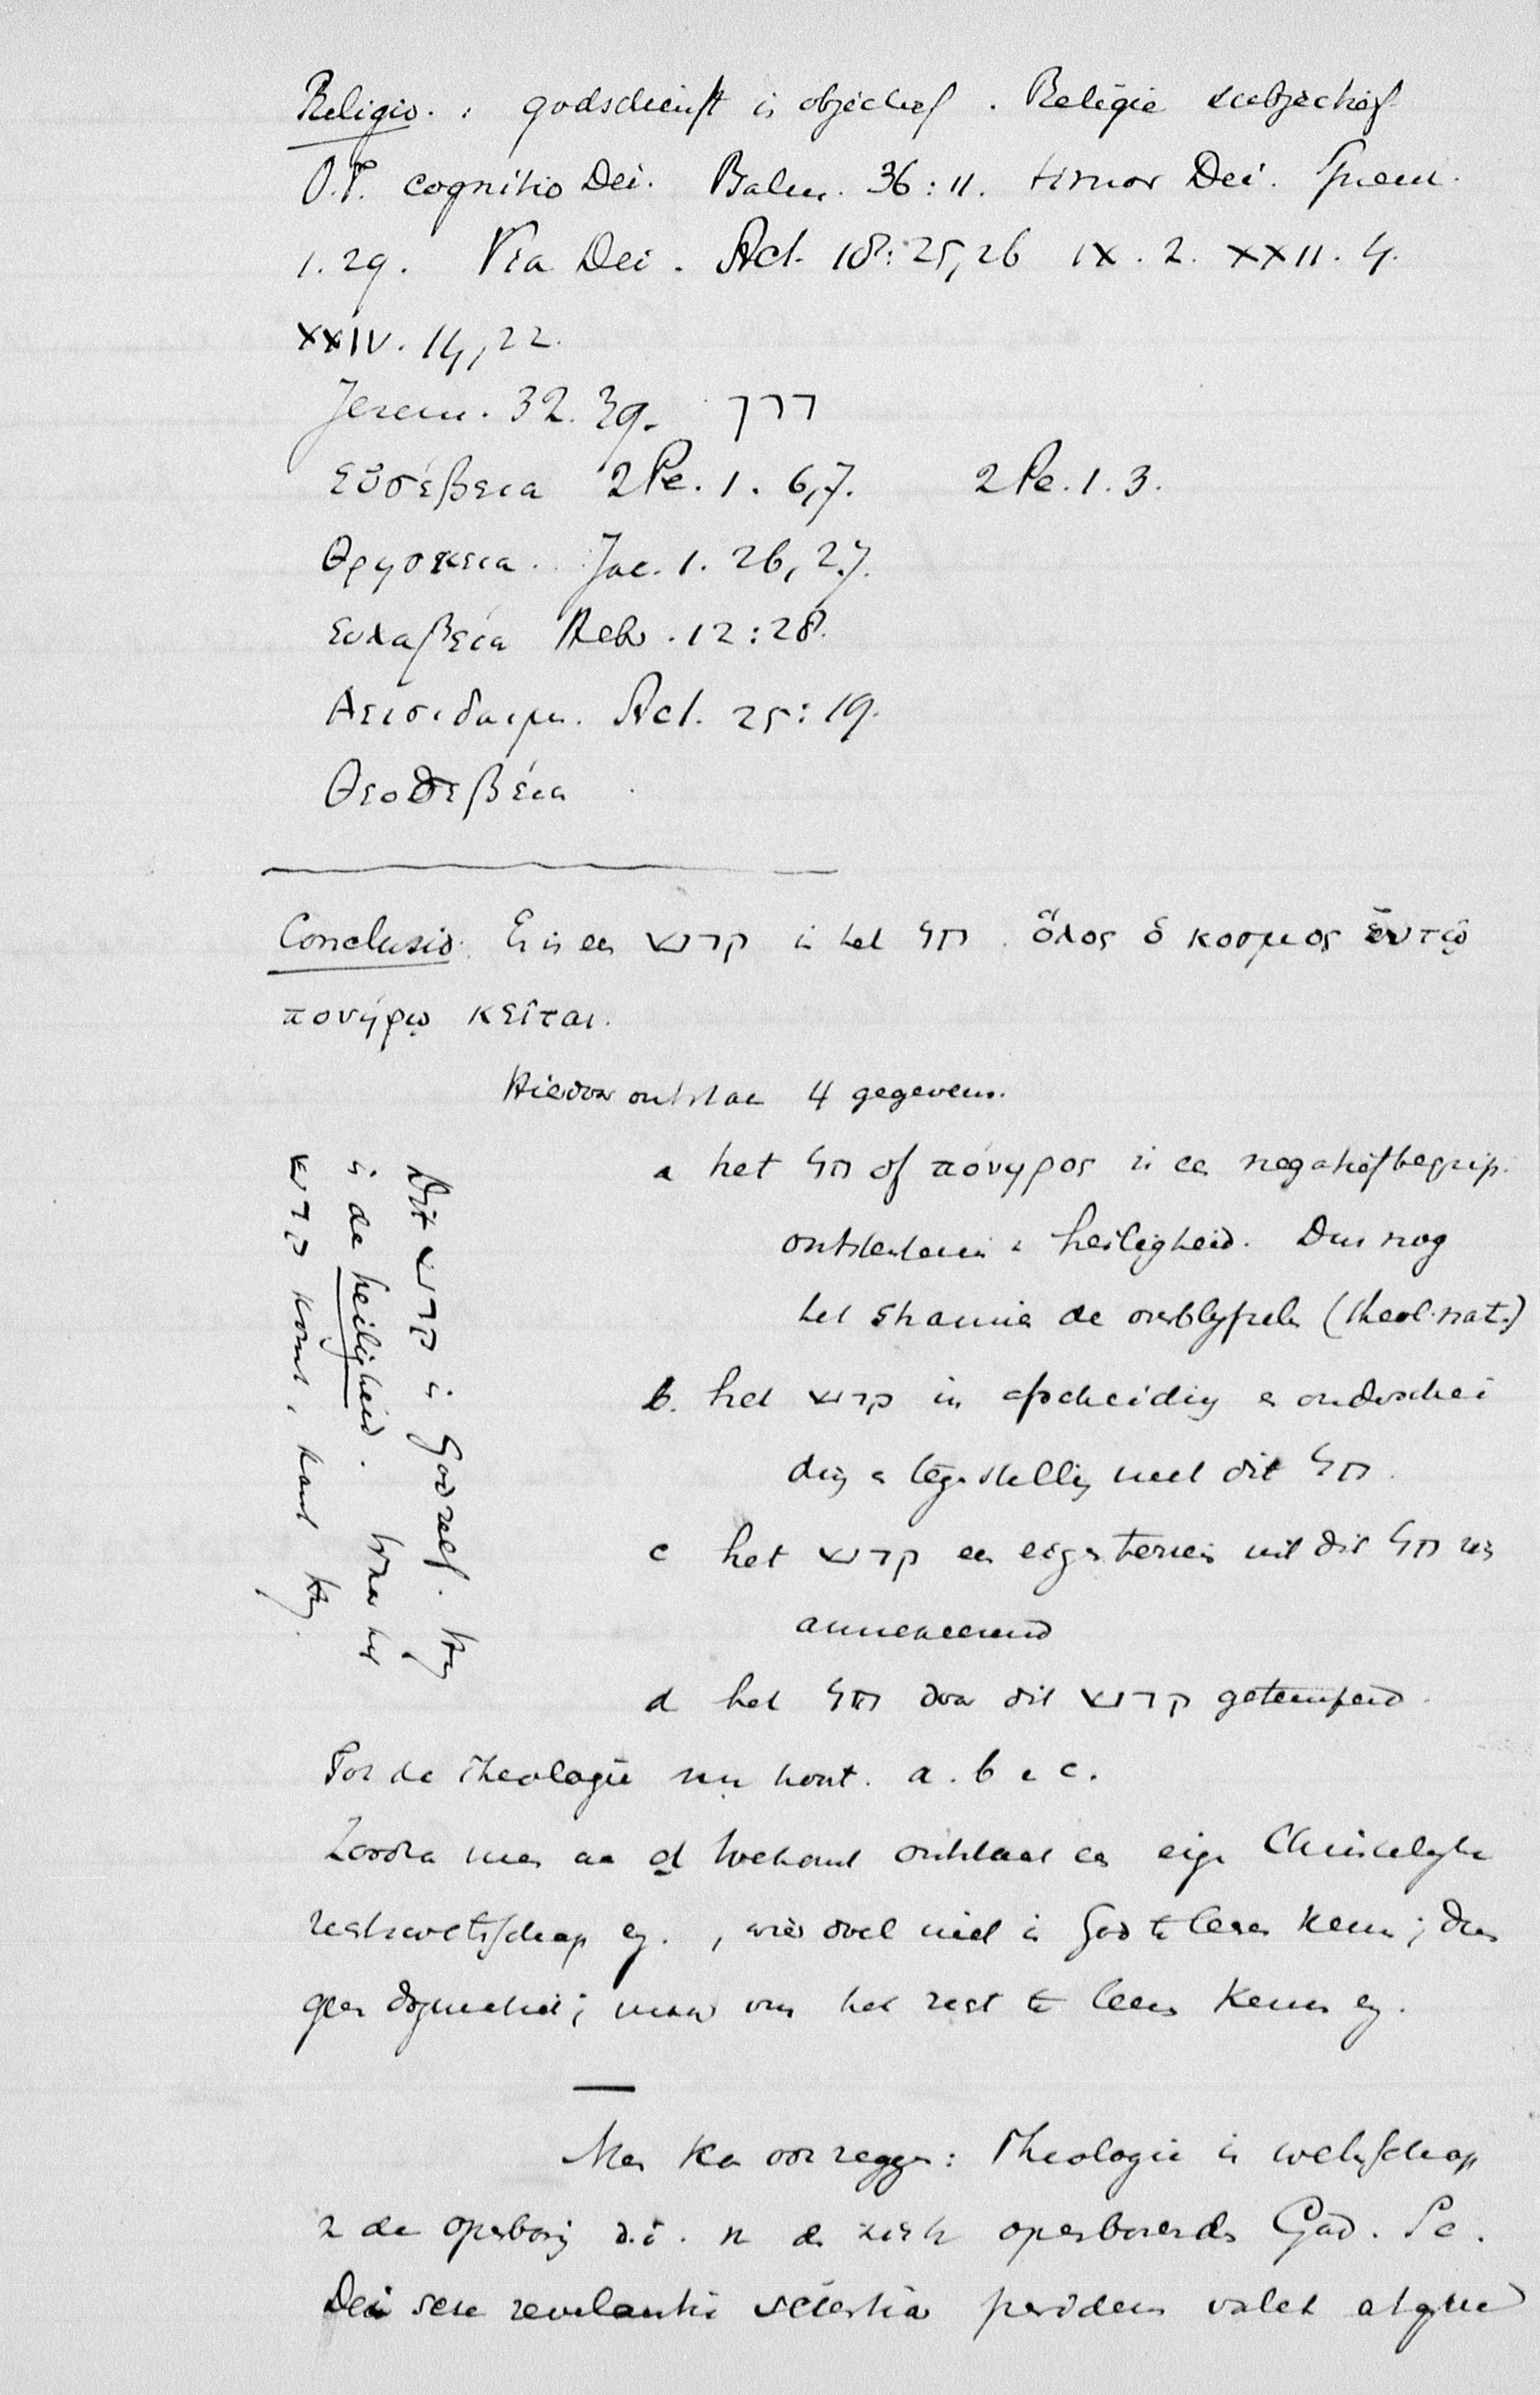 Religio. : godsdienst is objectief. Religie subjectief
O.T. cognitio Dei. Psalm. 36:11. timor Dei. Prov.
1.29. Via Dei. Act. 18:25,26 IX.2. XXII.4.
XXIV.14,22.
Jerem. 32.39. דרך
Εὐσέβεια 2 Pe. 1. 6,7. 2 Pe. 1.3.
Θρησκεια. Jac. 1. 26, 27.
Ευλαβεία Hebr. 12:28.
Δεισιδαιμ. Act. 25:19.
Θεοσεβέια
Conclusio. Er is een קדש in het חל. ὅλος ὁ κοσμος ἐν τῷ
πονήρῳ κεῖται.
Hierdoor ontstaan 4 gegevens.
a het חל of πόνηρος is een negatief begrip.
ontstentenis heiligheid. Dus nog
het stramien de overblyfselen (theol. nat.)
b. het קדש in afscheiding en onderschei
ding en tegenstelling met dit חל.
c het קדש een eigen terrein uit dit חל zich
annexeerend
d het חל door dit קדש getemperd.
Dit קדש is God zelf. Hy
is de heiligheid. Waar het
קדש komt, komt Hy.
Tot de Theologie nu komt. a. b en c.
Zoodra men aan d toekomt ontstaat een eigen Christelyke
rechtswetenschap ez., wier doel niet is God te leeren kennen; dus
geen dogmatiek; maar om het recht te leeren kennen ez.
Men kan ook zeggen: Theologie is wetenschap
de openbaring d.i. de zich openbarende God. Sc.
Dei sese revelantis scientia peridem valet atque